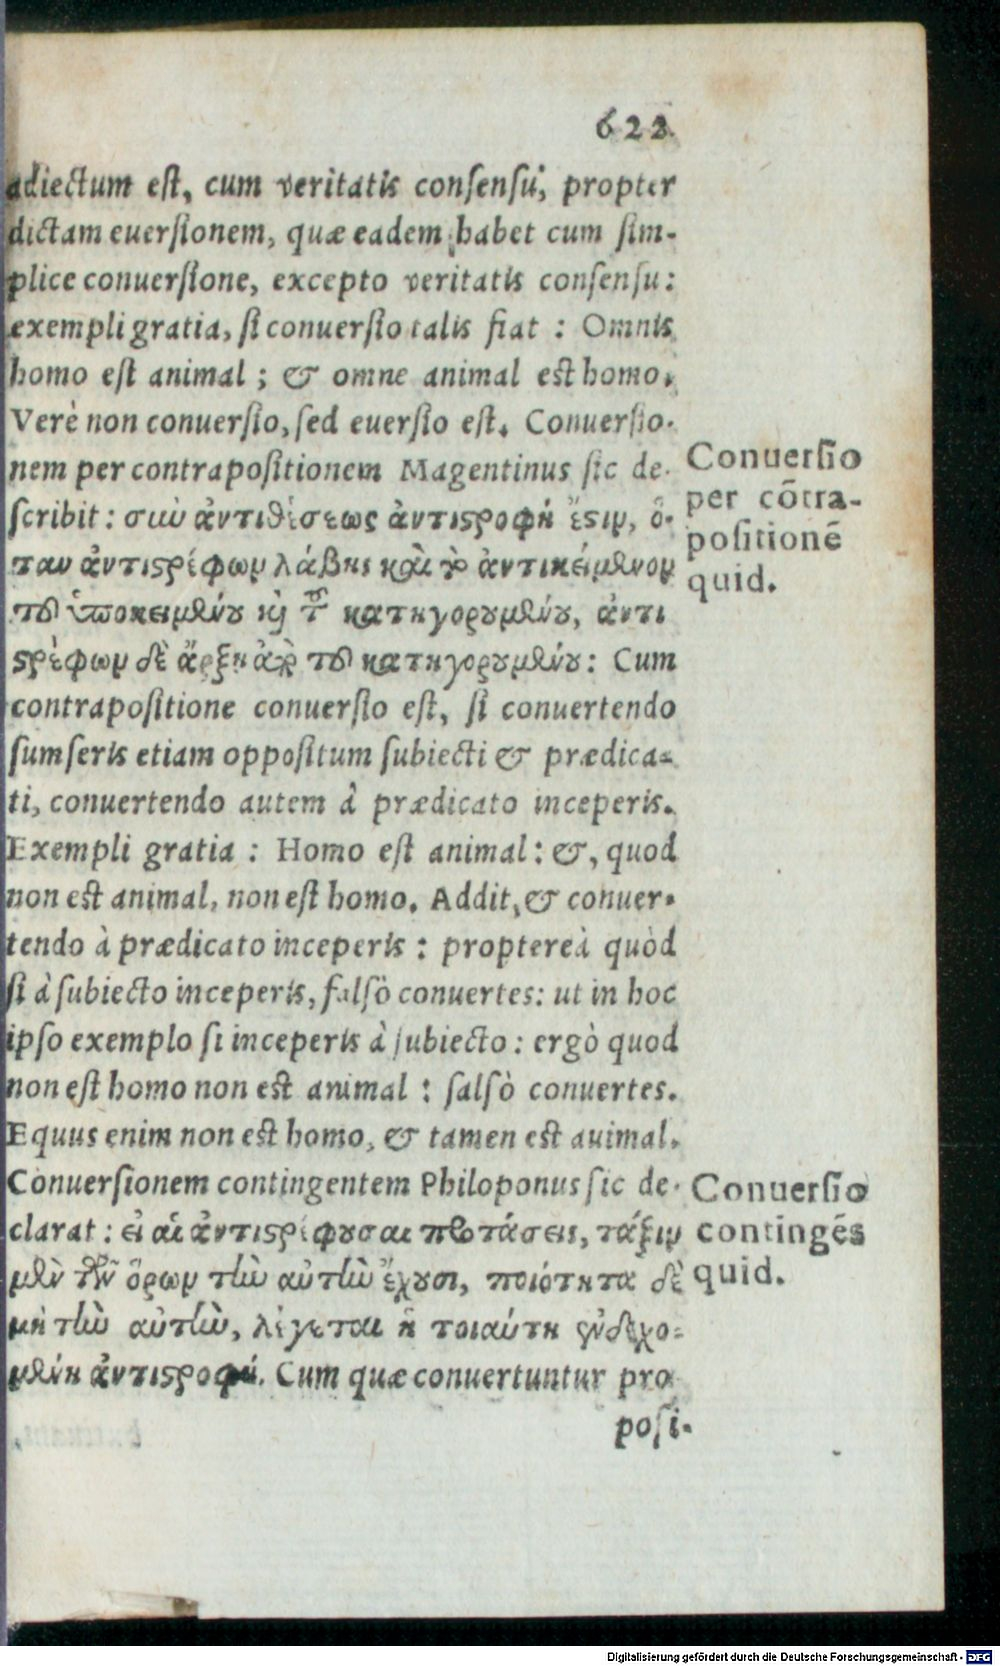 623
adiectum est, cum veritatis consensu, propter
dictam euersionem, quæ eadem habet cum sim-
plice conuersione, excepto veritatis consensu:
exempli gratia, si conuersio talis fiat : Omnis
homo est animal ; & omne animal est homo.
Verè non conuersio, sed euersio est. Conuersio-
nem per contrapositionem Magentinus sic de-
scribit: σὺν ἀντιθέσεως ἀντιςροφή ἔςιν, ὅ-
ταν ἀντιςρέφων λάβης καὶ τὸ ἀντικείμενον
τοῦ ὑποκειμένου κὶ τοῦ κατηγορουμένου, ἀντι
ςρέφων δὲ ἄρξη ἀπὸ τοῦ κατηγορουμένου: Cum
contrapositione conuersio est, si conuertendo
sumseris etiam oppositum subiecti & prædica-
ti, conuertendo autem à prædicato inceperis.
Exempli gratia : Homo est animal: &, quod
non est animal, non est homo. Addit, & conuer-
tendo à prædicato inceperis : proptereà quòd
si à subiecto inceperis, falsò conuertes: ut in hoc
ipso exemplo si inceperis à subiecto : ergò quod
non est homo non est animal : salsò conuertes.
Equus enim non est homo, & tamen est auimal.
Conuersionem contingentem Philoponus sic de-
clarat: εἰ αἱ ἀντιςρέφουσαι προτάσεις, τάξιν
μὲν τῶν ὅρων τὴν αὐτὴν ἔχουσι, ποιότητα δὲ
μὴ τὴν αὐτὴν, λέγεται ἡ τοιαύτη ἐνδεχο-
μένη ἀντιςροφή. Cum quæ conuertuntur pro
posi-
Conuersio
per cõtra-
positionẽ
quid.
Conuersio
contingẽs
quid.
Digitalisierung gefördert durch die Deutsche Forschungsgemeinschaft - DFG